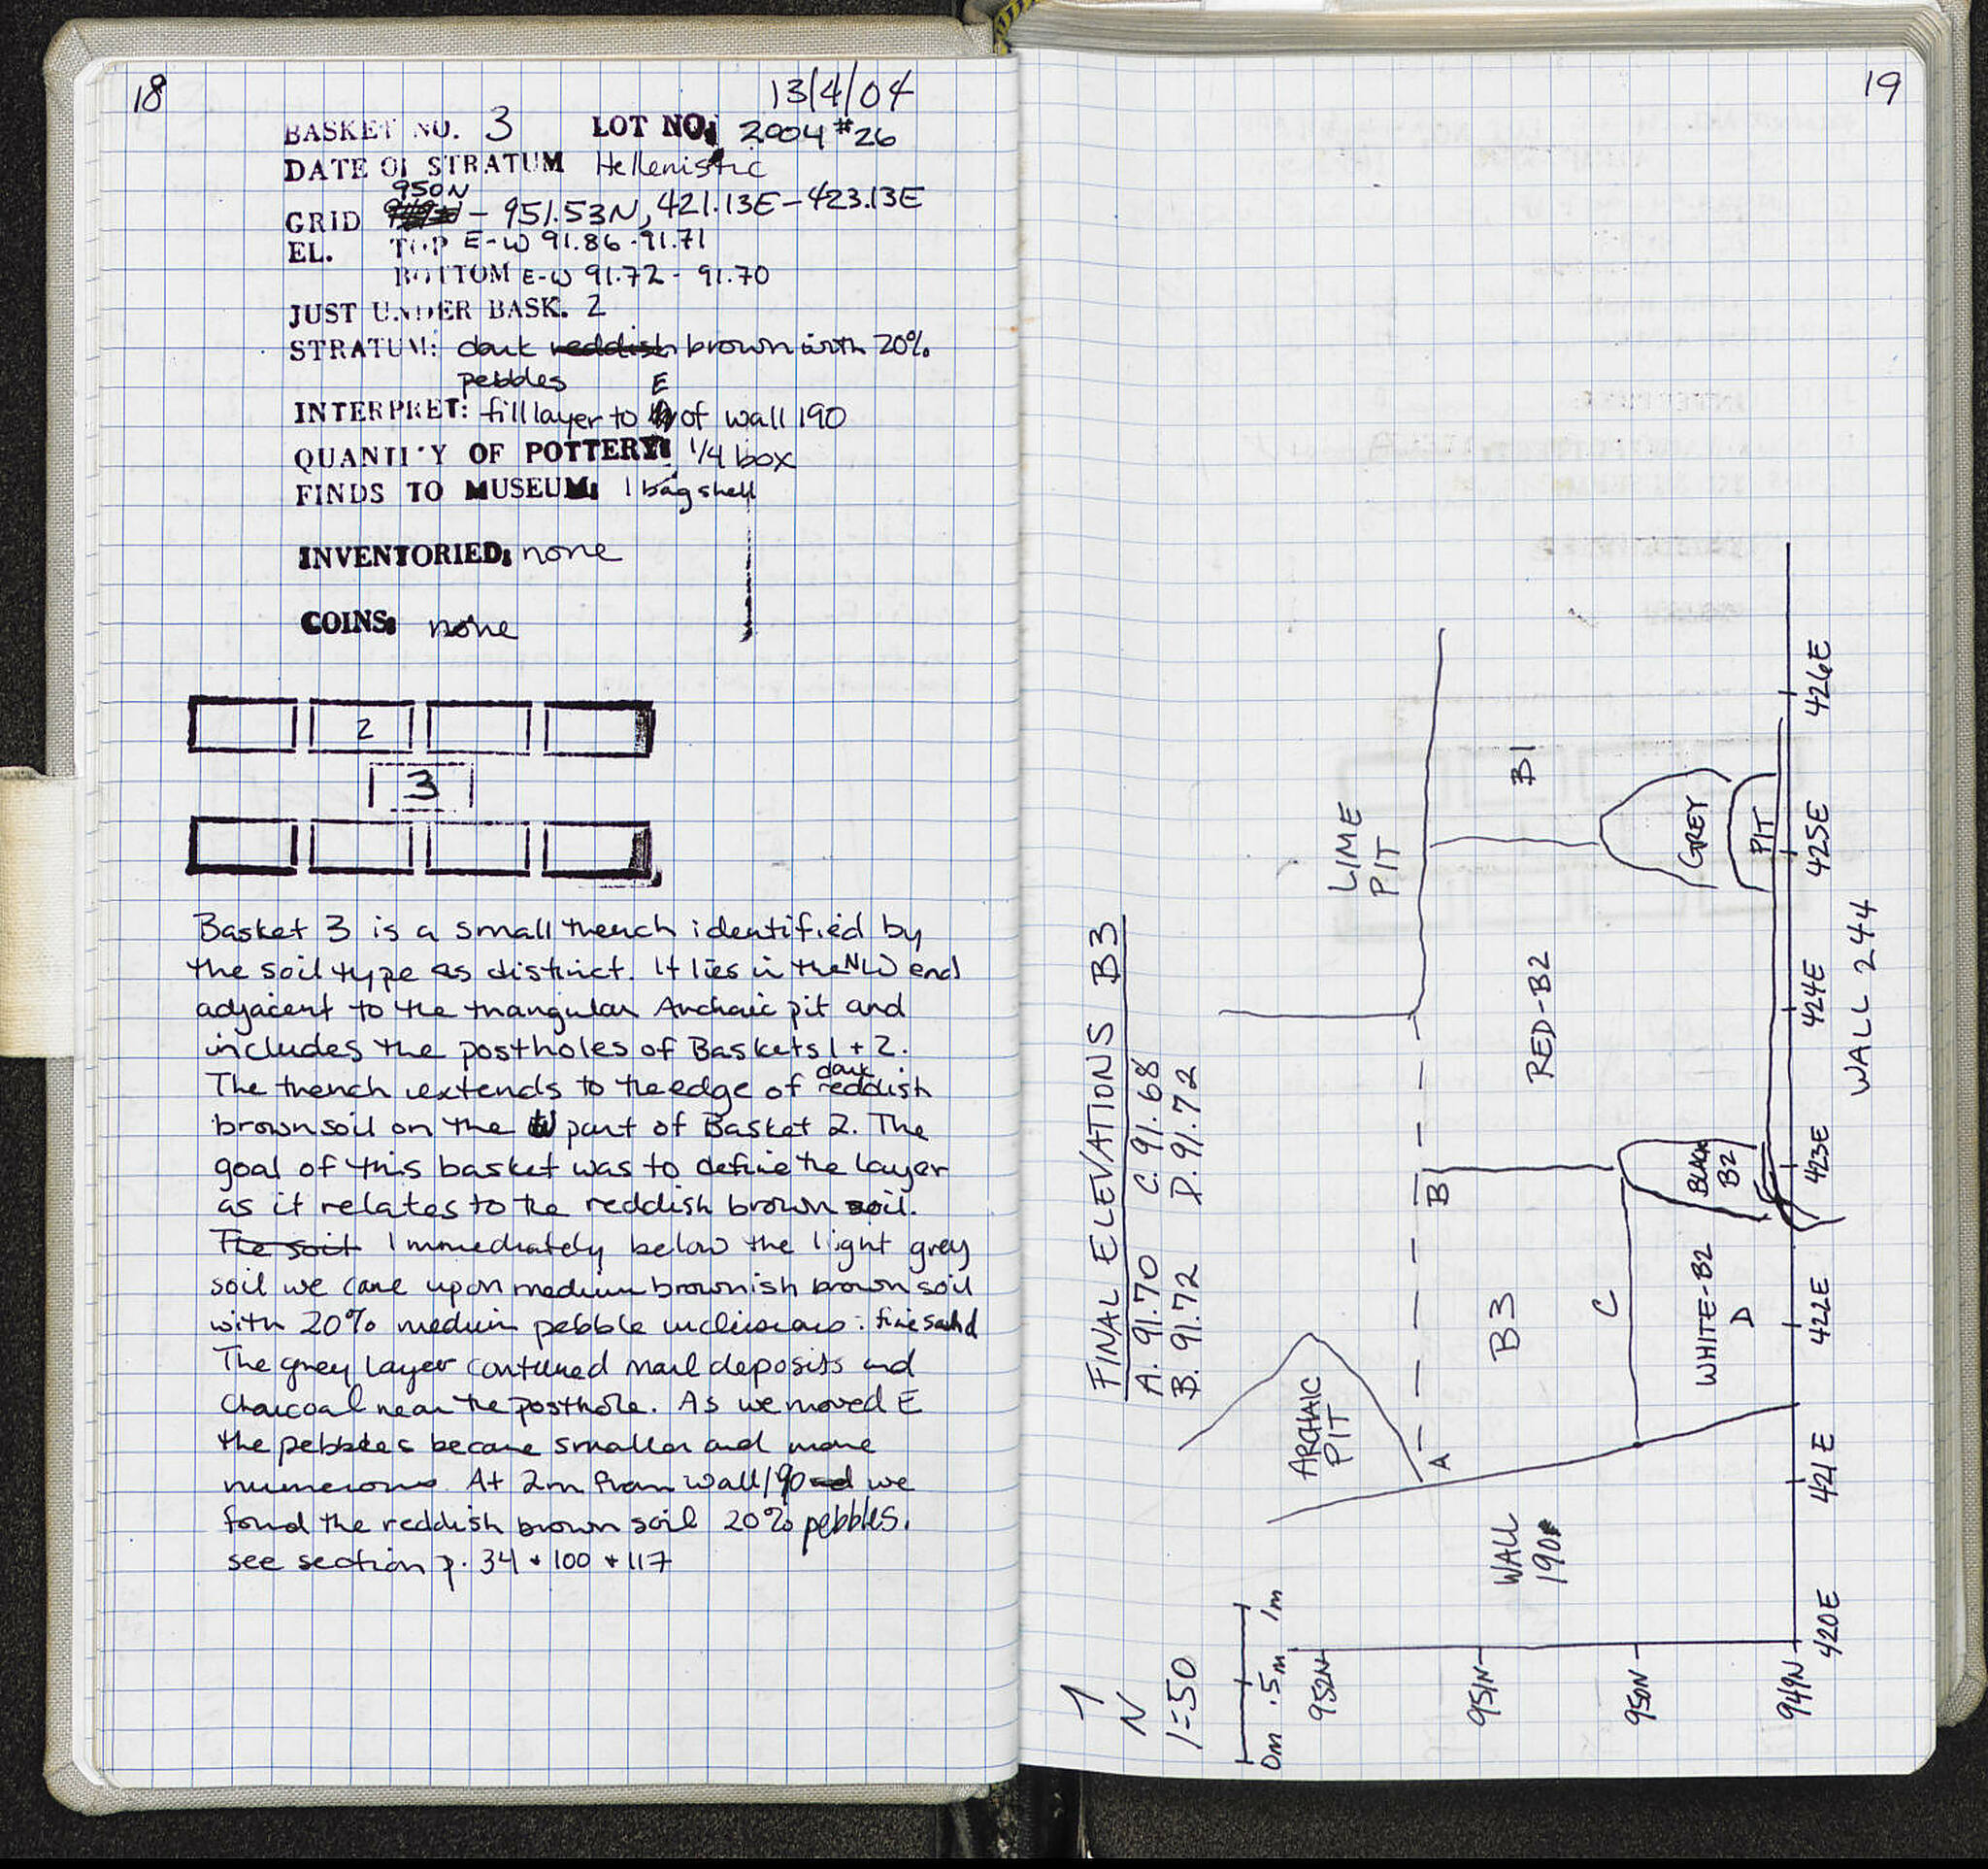 18
13/4/04
BASKET NO. 3 LOT NO: 2004 #26
DATE OF STRATUM Hellenistic
950N
GRID - 951.53N, 421.13E-423.13E
EL. TOP E-W 91.86-91.71
BOTTOM E-W 91.72 - 91.70
JUST UNDER BASK. 2
STRATUM: dark reddish brown with 20%
pebbles
E
INTERPRET: fill layer to of wall 190
QUANTITY OF POTTERY: 1/4 box
FINDS TO MUSEUM: 1 bag shell
INVENTORIED: none
COINS: none
2
3
Basket 3 is a small trench identified by
the soil type as distinct. It lies in the NW end
adjacent to the triangular Archaic pit and
includes the postholes of Baskets 1 + 2.
dark
The trench extends to the edge of reddish
brown soil on the W part of Basket 2. The
goal of this basket was to define the layer
as it relates to the reddish brown soil.
The soil Immediately below the light grey
soil we came upon medium brownish brown soil
with 20% medium pebble inclusions: fine sand
The grey layer contained marl deposits and
charcoal near the posthole. As we moved E
the pebbles became smaller and more
numerous. At 2m from wall 190 and we
found the reddish brown soil 20% pebbles.
see section p. 34 + 100 + 117
19
FINAL ELEVATIONS B3
A. 91.70 C. 91.68
B. 91.72 D. 91.72
N
1=50
0m .5m 1m
LIME
PIT
ARCHAIC
PIT
A
B
B1
RED-B2
B3
C
GREY
PIT
BLACK
B2
WHITE-B2
D
WALL
190
952N
951N
950N
949N
420E
421E
422E
423E
424E
425E
426E
WALL 244